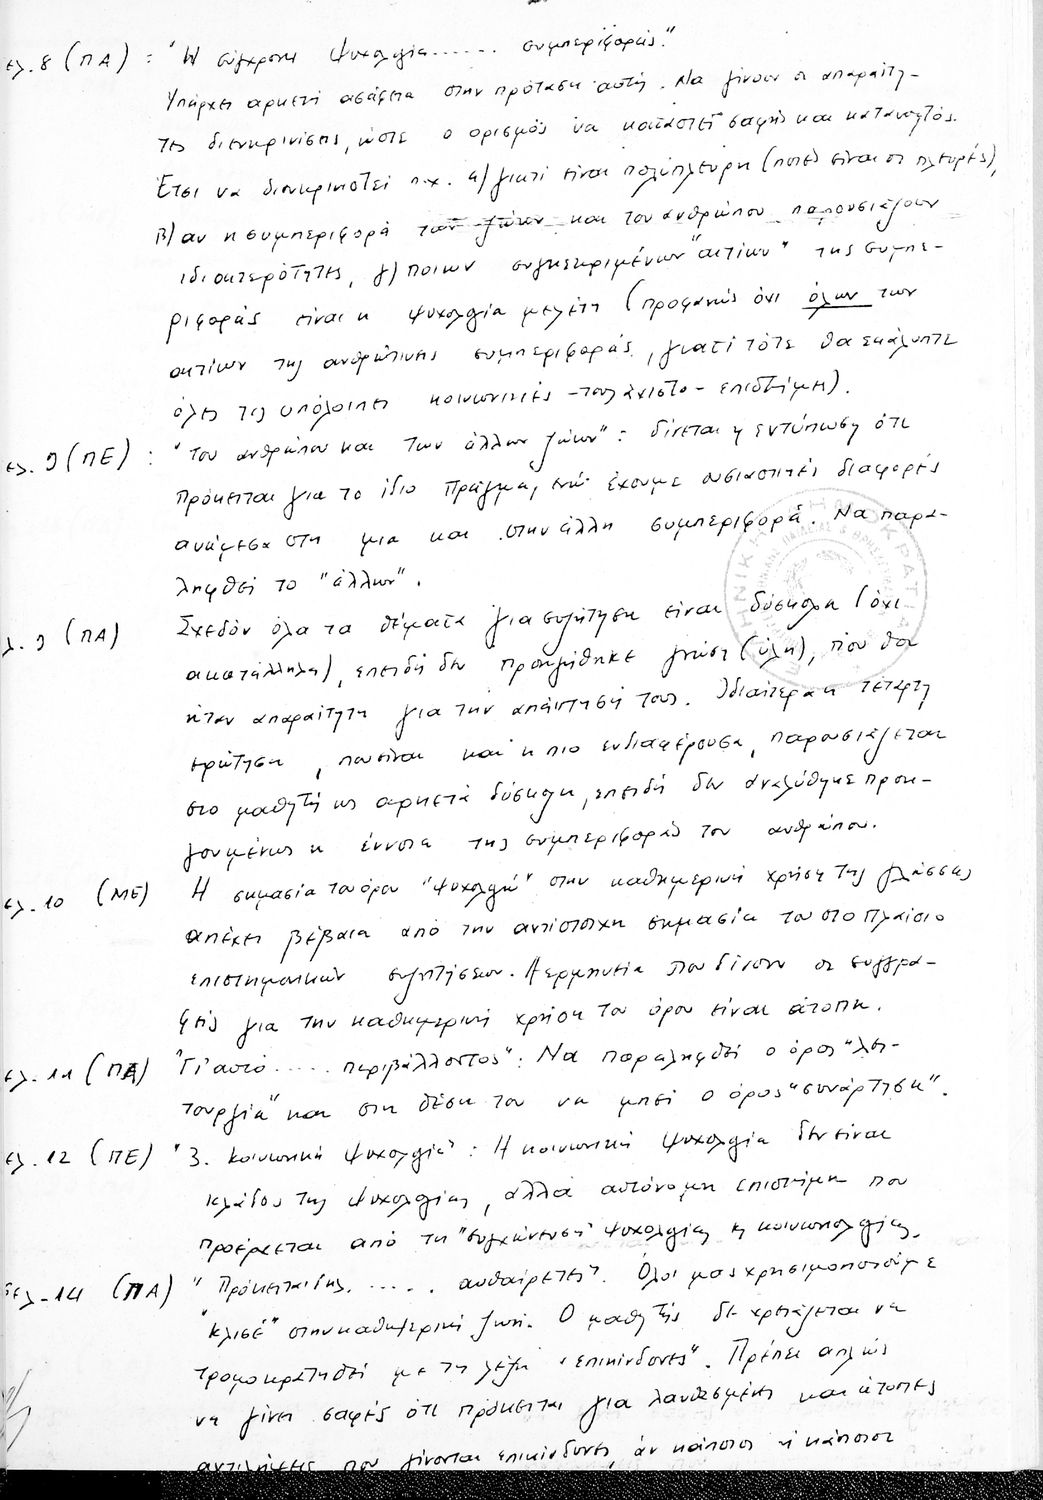 ελ. 8 (ΠΑ) : "Η σύγχρονη ψυχολογία....... συμπεριφοράς."
Υπάρχει αρκετή ασάφεια στην πρόταση αυτή. Να γίνουν οι απαραίτη-
τες διευκρινίσεις, ώστε ο ορισμός να καταστεί σαφής και κατανοητός.
Έτσι να διευκρινιστεί π.χ. α) γιατί είναι πολύπλευρη (ποιές είναι οι πλευρές),
β) αν η συμπεριφορά των ζώων και του ανθρώπου παρουσιάζουν
ιδιαιτερότητες, γ) ποιων συγκεκριμένων "αιτίων" της συμπε-
ριφοράς είναι η ψυχολογία μελέτη (προφανώς όχι όλων των
αιτίων της ανθρώπινης συμπεριφοράς, γιατί τότε θα εκάλυπτε
όλες τις υπόλοιπες κοινωνικές -τουλάχιστο- επιστήμες).
ελ. 9 (ΠΕ) : "του ανθρώπου και των άλλων ζώων" : δίνεται η εντύπωση ότι
πρόκειται για το ίδιο πράγμα, ενώ έχουμε ουσιαστικές διαφορές
ανάμεσα στη μια και στην άλλη συμπεριφορά. Να παρα-
ληφθεί το "άλλων".
λ. 9 (ΠΑ) Σχεδόν όλα τα θέματα για συζήτηση είναι δύσκολα (όχι
ακατάλληλα), επειδή δεν προηγήθηκε γνώση (ύλη), που θα
ήταν απαραίτητη για την απάντησή τους. Ιδιαίτερα η τέταρτη
ερώτηση, που είναι και η πιο ενδιαφέρουσα, παρουσιάζεται
στο μαθητή ως αρκετά δύσκολη, επειδή δεν αναλύθηκε προη-
γουμένως η έννοια της συμπεριφοράς του ανθρώπου.
ελ. 10 (ΜΕ) Η σημασία του όρου "ψυχολογία" στην καθημερινή χρήση της γλώσσας
απέχει βέβαια από την αντίστοιχη σημασία του στο πλαίσιο
επιστημονικών συζητήσεων. Η ερμηνεία που δίνουν οι συγγρα-
φείς για την καθημερινή χρήση του όρου είναι άτοπη.
ελ. 11 (ΠΑ) "Γι' αυτό ..... περιβάλλοντος" : Να παραληφθεί ο όρος "λει-
τουργία" και στη θέση του να μπεί ο όρος "συνάρτηση".
ελ. 12 (ΠΕ) "3. Κοινωνική ψυχολογία" : Η κοινωνική ψυχολογία δεν είναι
κλάδος της ψυχολογίας, αλλά αυτόνομη επιστήμη που
προέρχεται από τη "συγχώνευση" ψυχολογίας κ κοινωνιολογίας.
Σελ. 14 (ΠΑ) "Πρόκειται δηλ. ..... αυθαίρετες". Όλοι μας χρησιμοποιούμε
"κλισέ" στην καθημερινή ζωή. Ο μαθητής δε χρειάζεται να
τρομοκρατηθεί με τη λέξη "επικίνδυνες". Πρέπει απλώς
να γίνει σαφές ότι πρόκειται για λανθασμένες και άτοπες
αντιλήψεις που γίνονται επικίνδυνες, άν κάποιος ή κάποιοι